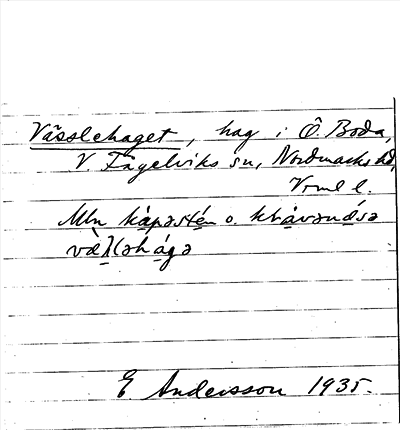 Vässlehaget, hag i Ö. Boda,
V. Fågelviks sn, Nordmarks hd,
Vrml l.
Mln kȧpəstén o. krȧvənǽsə
væ̀l(əhágə
E Andersson 1935.